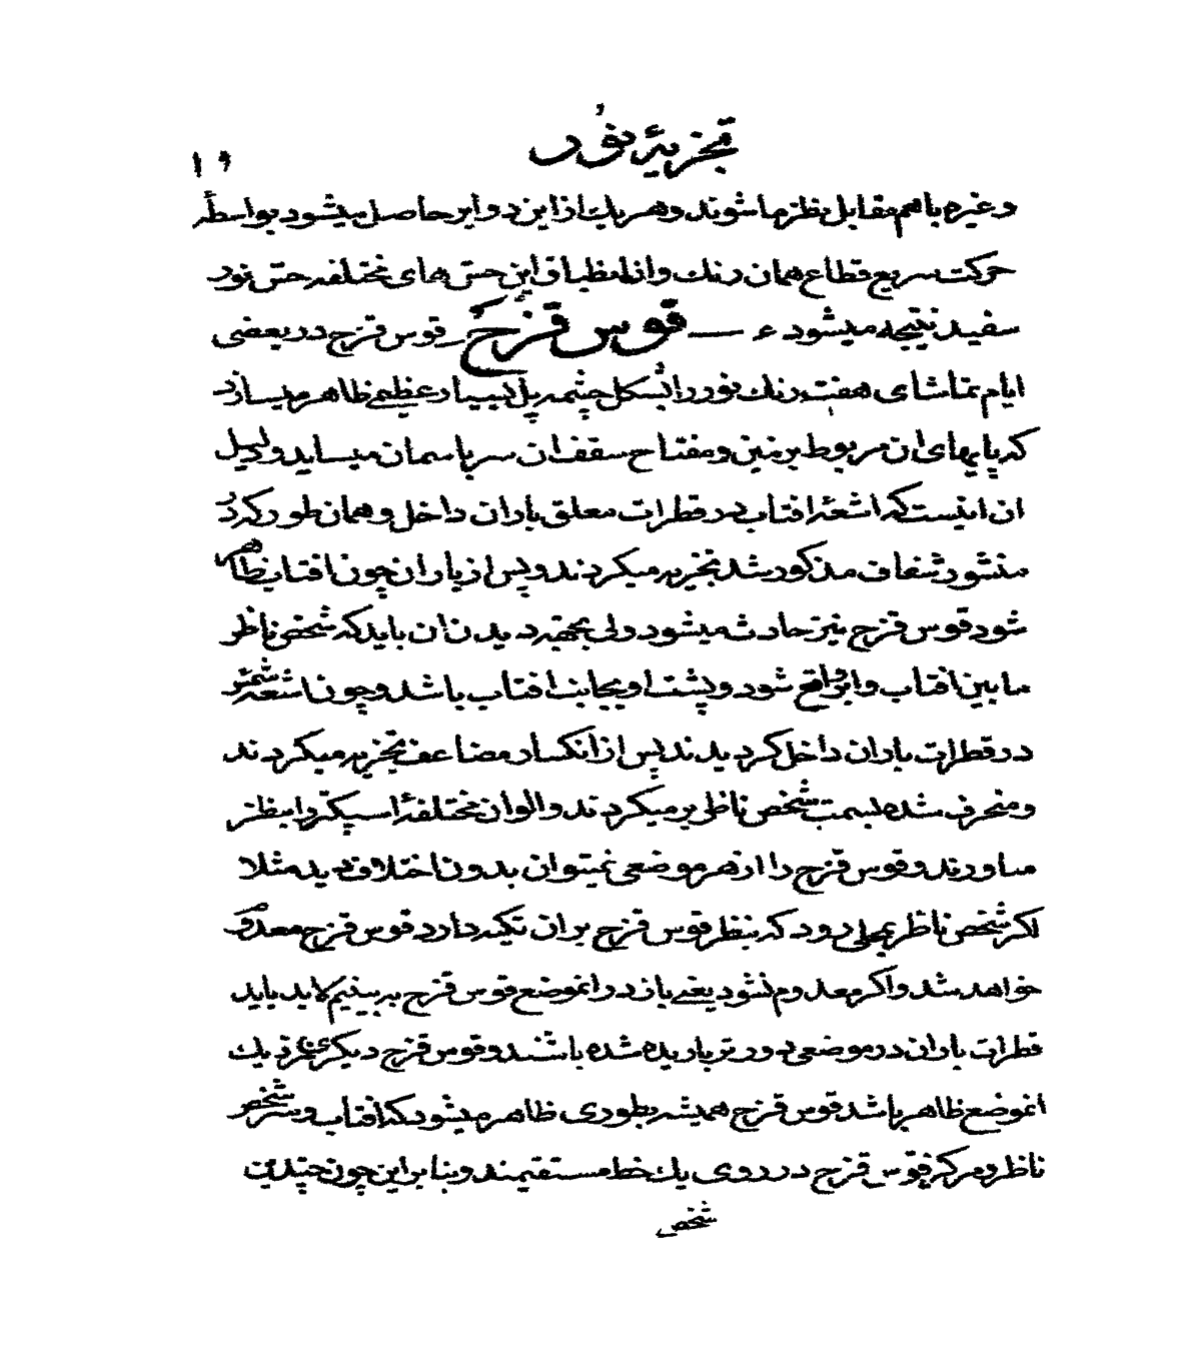 تجزیهٔ نور
۱۹
و غیره باهم مقابل نظر ما شوند و هر یك از این دوایر حاصل میشود بواسطهٔ
حرکت سریع قطاع همان رنك و از انطباق این حس های مختلفه حس نور
سفید نتیجه میشود ء — قوس قزح — قوس قزح در بعضی
ایام تماشای هفت رنك نور را بشکل چشمه پل بسیار عظیمی ظاهر میسازد
که پایهای ان مربوط بزمین و مفتاح سقف ان سر باسمان میساید و دلیل
ان اینست که اشعهٔ افتاب در قطرات معلق باران داخل و همان طور که در
منشور شفاف مذکور شد تجزیه میکردند و پس از باران چون افتاب ظاهر
شود قوس قزح نیز حادث میشود ولی بجهة دیدن ان باید که شخص ناظر
ما بین افتاب و ابر واقع شود و پشت او بجانب افتاب باشد و چون اشعهٔ شمس
در قطرات باران داخل کردیدند پس از انکسار مضاعف تجزیه میکردند
و منحرف شده بسمت شخص ناظر بر میکردند و الوان مختلفهٔ اسپکتر را بنظر
میاورند و قوس قزح را از هر موضعی نمیتوان بدون اختلاف دید مثلا
اکر شخص ناظر بمحلی رود که بنظر قوس قزح بر ان تکیه دارد قوس قزح معدوم
خواهد شد و اکر معدوم نشود یعنی باز در انموضع قوس قزح به بینیم لابد باید
قطرات باران در موضعی دورتر باریده شده باشند و قوس قزح دیکری نزدیك
انموضع ظاهر باشد قوس قزح همیشه بطوری ظاهر میشود که افتاب و سر شخص
ناظر و مرکز قوس قزح در روی یك خط مستقیمند و بنا بر این چون چندین
شخص